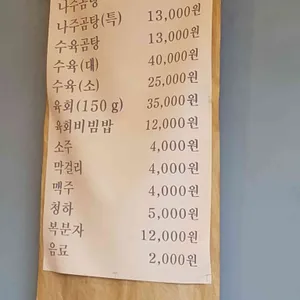 나주곰탕
나주곰탕(특) 13,000원
수육곰탕 13,000원
수육(대) 40,000원
수육(소) 25,000원
육회(150g) 35,000원
육회비빔밥 12,000원
소주 4,000원
막걸리 4,000원
맥주 4,000원
청하 5,000원
복분자 12,000원
음료 2,000원